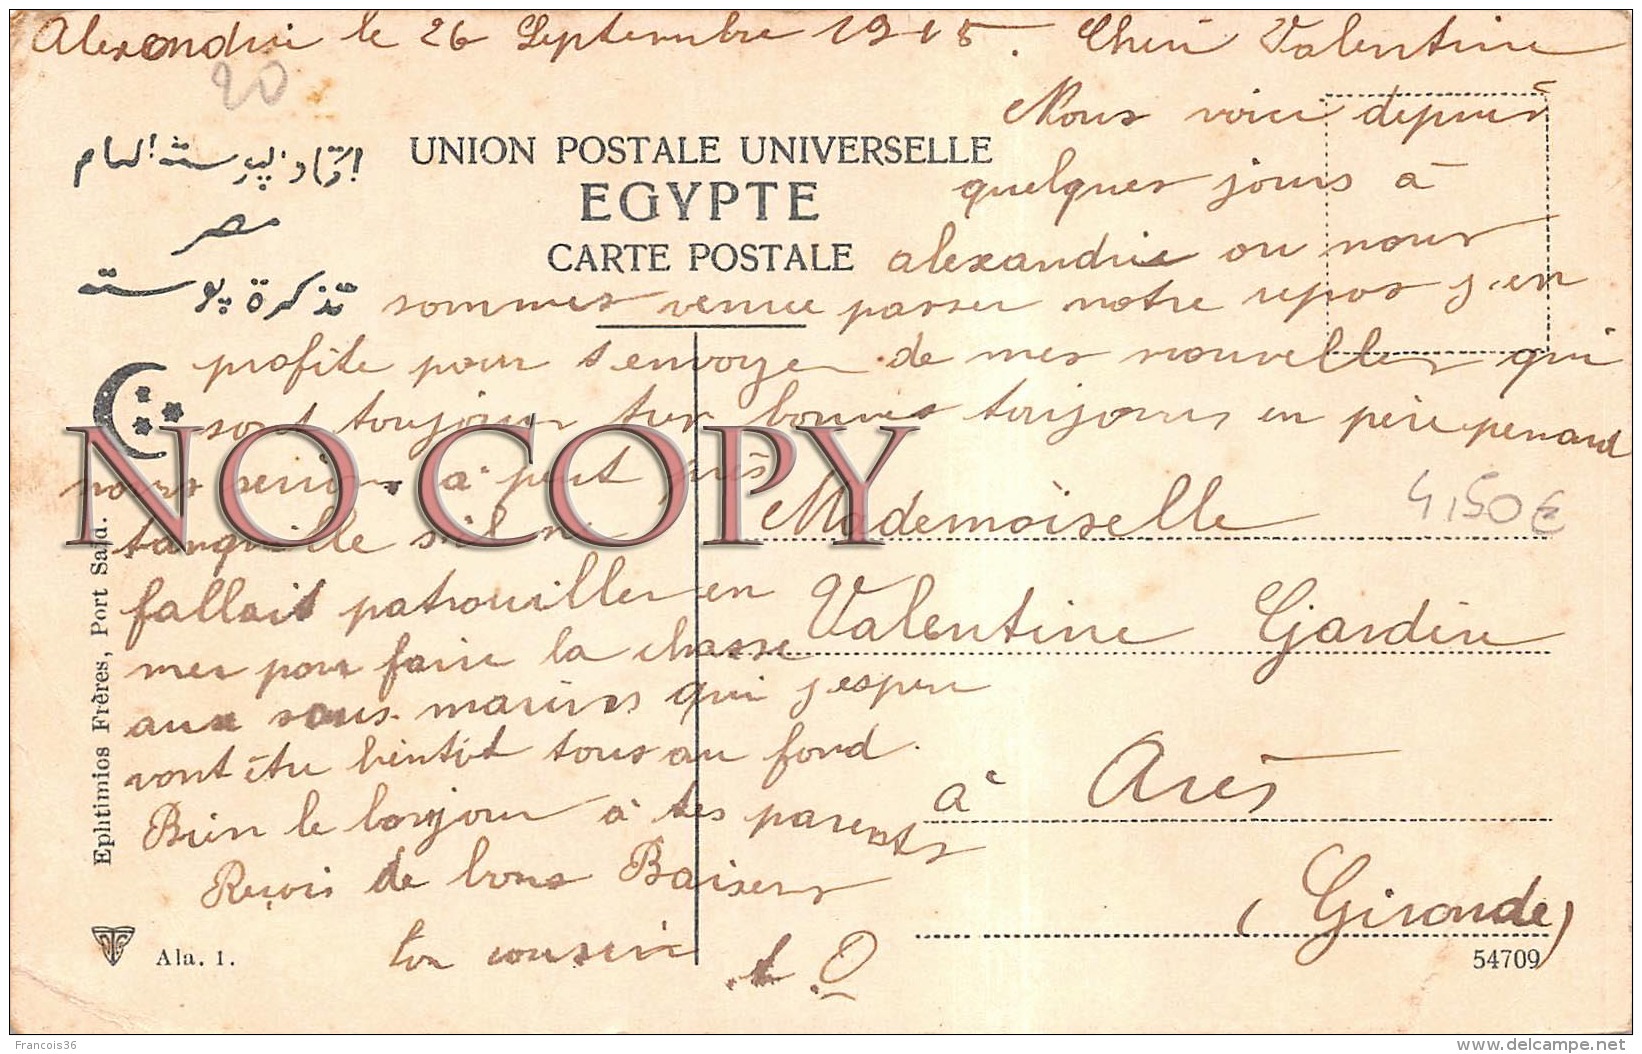 Alexandrie le 26 Septembre 1915. Chère Valentine
20
Nous voici depuis
quelques jours à
alexandrie ou nous
sommes venue passer notre repos j'en
profite pour t'envoyer de mes nouvelles qui
sont toujours très bonnes toujours en père penard
nous serions à peut près
tanquille s'il ne
fallait patrouiller en
mer pour faire la chasse
aux sous-marins qui j'espère
vont être bientôt tous au fond.
Bien le bonjour à tes parents
Reçois de bons Baisers
ton cousin
UNION POSTALE UNIVERSELLE
EGYPTE
CARTE POSTALE
مصر
تذكرة بوسته
NO COPY
Mademoiselle
4,50€
Valentine Gjardin
à Arès
(Gironde)
Ephtimios Frères, Port Said.
Ala. 1.
54709
Francois36
www.delcampe.net